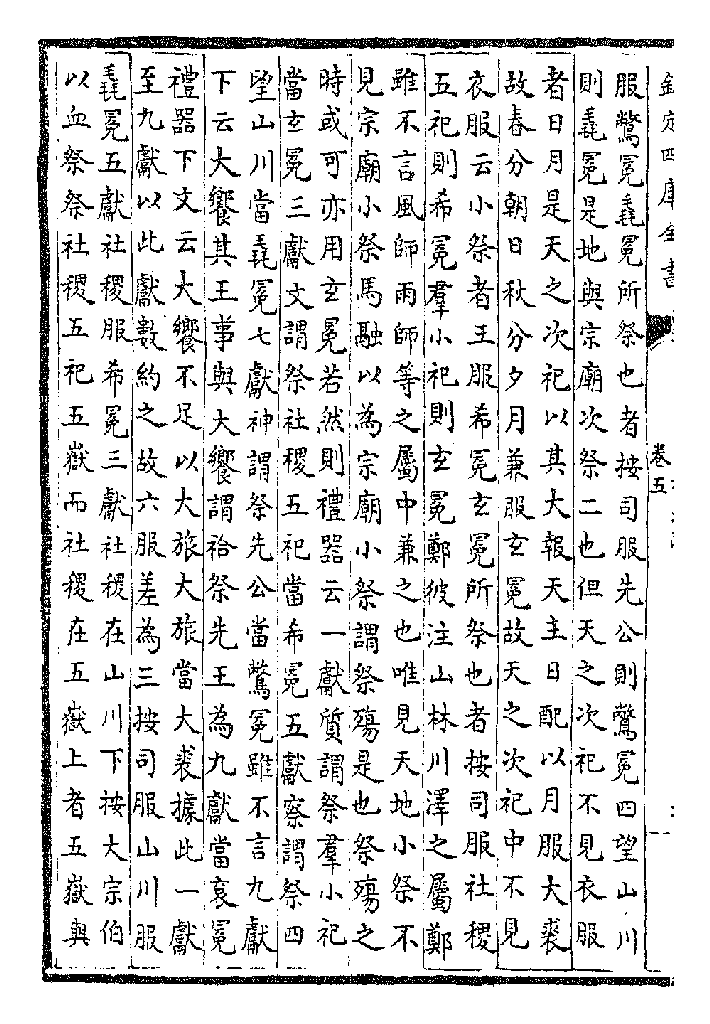 欽定四庫全書
卷五
服鷩冕毳冕所祭也者按司服先公則鷩冕四望山川
則毳冕是地與宗廟次祭二也但天之次祀不見衣服
者日月是天之次祀以其大報天主日配以月服大裘
故春分朝日秋分夕月兼服玄冕故天之次祀中不見
衣服云小祭者王服希冕玄冕所祭也者按司服社稷
五祀則希冕羣小祀則玄冕鄭彼注山林川澤之屬鄭
雖不言風師雨師等之屬中兼之也唯見天地小祭不
見宗廟小祭馬融以為宗廟小祭謂祭殤是也祭殤之
時或可亦用玄冕若然則禮器云一獻質謂祭羣小祀
當玄冕三獻文謂祭社稷五祀當希冕五獻察謂祭四
望山川當毳冕七獻神謂祭先公當鷩冕雖不言九獻
下云大饗其王事與大饗謂祫祭先王為九獻當衮冕
禮器下文云大饗不足以大旅大旅當大裘據此一獻
至九獻以此獻數約之故六服差為三按司服山川服
毳冕五獻社稷服希冕三獻社稷在山川下按大宗伯
以血祭祭社稷五祀五嶽而社稷在五嶽上者五嶽與